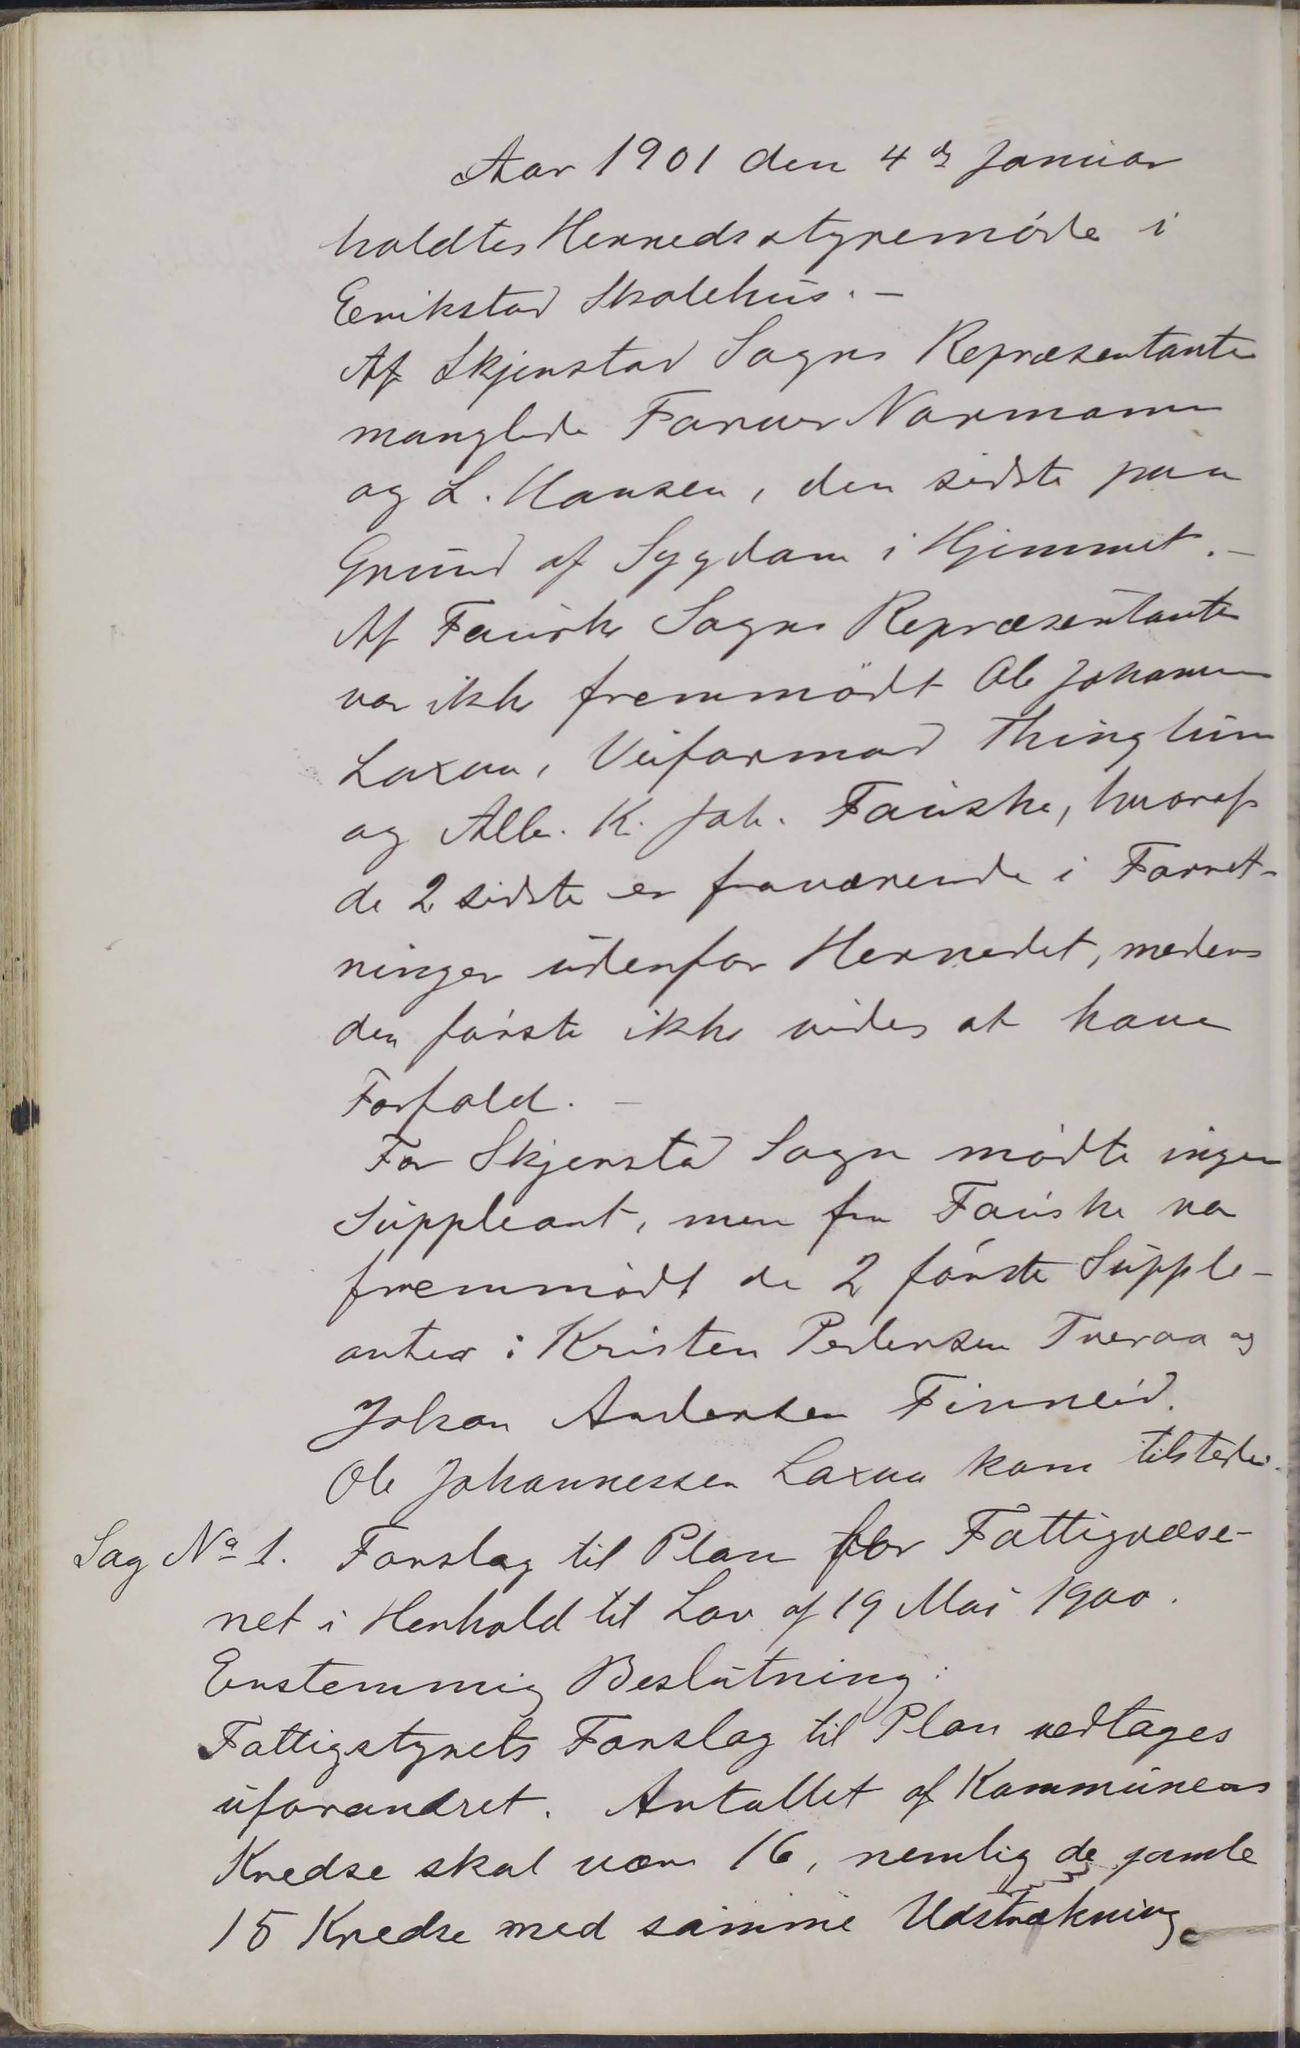 Aar 1901 den 4de Januar
holdtes Herredsstyremöde i
Erikstad Skolehus. –
Af Skjerstad Sogns Repræsentanter
manglede Farver Normann
og L. Hansen, den sidste paa
Grund af Sygdom i Hjemmet. –
Af Fauske Sogns Repræsentanter
var ikke fremmödt Ole Johannes
Laxaa, Veiformand Thinglum
og Alb. K. Joh. Fauske, hvoraf
de 2 sidste er fraværende i Forret-
ninger udenfor Herredet, medens
den förste ikke vides at have
Forfald. –
For Skjerstad Sogn mödte ingen
Suppleant, men fra Fauske var
fremmödt de 2 förste Supple-
anter: Kristen Pedersen Tveraa og
Johan Andersen Finneid.
Ole Johannessen Laxaa kom tilstede.
Sag No 1. Forslag til Plan for Fattigvæse-
net i Henhold til Lov af 19 Mai 1900.
Enstemmig Beslutning:
Fattigstyrets Forslag til Plan vedtages
uforandret. Antallet af Kommunens
Kredse skal være 16, nemlig de gamle
15 Kredse med samme Udstrækning